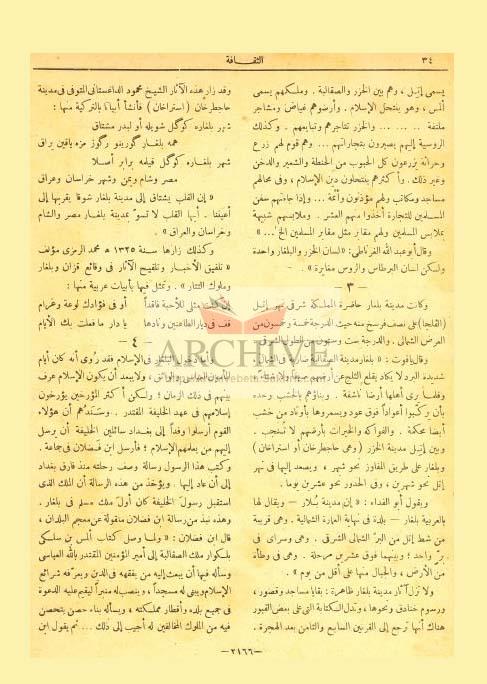 ٣٤
الثقافة
يسمى إتيل ، وهم بين الخزر والصقالبة . وملكهم يسمى
ألمس ، وهو ينتحل الإسلام . وأرضوهم غياض ومشاجر
ملتفة ... ... ... والخزر تتاجرهم وتبايعهم . وكذلك
الروسية إليهم يصيرون بتجاراتهم ... وهم قوم لهم زرع
وحراثة يزرعون كل الحبوب من الحنطة والشعير والدخن
وغير ذلك . وأكثرهم ينتحلون دين الإسلام ، وفى محالهم
مساجد ومكاتب ولهم مؤذنون وأئمة ... وإذا جاءتهم سفن
المسلمين للتجارة أخذوا منهم العشر . وملابسهم شبيهة
بملابس المسلمين ولهم مقابر مثل مقابر المسلمين الخ ... »
وقال أبو عبد الله الغرناطى : «لسان الخزر والبلغار واحدة
ولكن لسان البرطاس والروس مغايرة » .
— ٣ —
وكانت مدينة بلغار حاضرة المملكة شرقى نهر إتيل
(الفلجا) على نصف فرسخ منه حيث الدرجة خمسة وخمسون من
العرض الشمالى . والدرجة ست وستون من الطول الشرقى
وقال ياقوت : « بلغار مدينة الصقالبة ضاربة فى الشمال .
شديدة البرد لا يكاد يقلع الثلج عن أرضهم صيفاً ولا شتاء
وقلما يرى أهلها أرضا ناشفة . وبناؤهم بالخشب وحده
بأن يركبوا أعواداً فوق عود ويسمروها بأوتاد من خشب
أيضا محكمة . والفواكه والخيرات بأرضهم لا تنجب .
وبين إتيل مدينة الخزر (وهى حاجطرخان أو استراخان)
وبلغار على طريق المفاوز نحو شهر ، ويصعد إليها فى نهر
إتل نحو شهرين ، وفى الحدور نحو عشرين يوما .
ويقول أبو الفداء : « إن مدينة بُلار — ويقال لها
بالعربية بلغار — بلدة فى نهاية العمارة الشمالية . وهى قريبة
من شط إتل من البرّ الشمالى الشرقى . وهى وسراى فى
برّ واحد ؛ وبينهما فوق عشرين مرحلة . وهى فى وطأة
من الأرض ، والجبال منها على أقل من يوم » .
ولا تزال آثار مدينة بلغار ظاهرة : بقايا مساجد وقصور ،
ورسوم خنادق ونحوها ، وتدل الكتابة التى على بعض القبور
هناك أنها ترجع إلى القرنين السابع والثامن بعد الهجرة .
وقد زار هذه الآثار الشيخ محمود الداغستانى المتوفى فى مدينة
حاجطرخان (استراخان) فأنشأ أبياتا بالتركية منها :
شهر بلغاره كوكل شويله أو لبدر مشتاق
همه بلغار كورينو ركوز مزه ياقين براق
شهر بلغاره كوكل قيله برابر أصلا
مصر وشام ويمن وشهر خراسان وعراق
« إن القلب يشتاق إلى مدينة بلغار شوقا يقربها إلى
أعيننا . أيها القلب لا تسوّ بمدينة بلغار مصر والشام
وخراسان والعراق »
وكذلك زارها سنة ١٣٢٥ هـ محمد الرمزى مؤلف
« تلفيق الأخبار وتلقيح الآثار فى وقائع قزان وبلغار
وملوك التتار » . وتمثل فيها بأبيات عربية منها :
إن كنت مثلى للأحبة فاقداً أو فى فؤادك لوعة وغرام
قف فى ديار الظاعنين ونادها يا دار ما فعلت بك الأيام
— ٤ —
وأما دخول البلغار فى الإسلام فقد روى أنه كان أيام
المأمون العباسى والواثق ، ولا يبعد أن يكون الإسلام عرف
بينهم فى ذلك الزمان ؛ ولكن أكثر المؤرخين يؤرخون
إسلامهم فى عهد الخليفة المقتدر . وسندهم أن هؤلاء
القوم أرسلوا وفداً إلى بغداد سائلين الخليفة أن يرسل
إليهم من يعلمهم الإسلام ؛ فأرسل ابن فضلان فى جماعة .
وكتب هذا الرسول رسالة وصف رحلته منذ فارق بغداد
إلى أن عاد إليها . ويؤخذ من هذه الرسالة أن الملك الذى
استقبل رسول الخليفة كان أول ملك مسلم فى بلغار .
وهذه نبذ من رسالة ابن فضلان منقولة عن معجم البلدان ،
قال ابن فضلان : « ولما وصل كتاب ألمس بن سلكى
بلكوار ملك الصقالبة إلى أمير المؤمنين المقتدر بالله العباسى
وسأله فيها أن يبعث إليه من يفقهه فى الدين ويعرفه شرائع
الإسلام ويبنى له مسجداً ، وينصب له منبراً ليقيم عليه الدعوة
فى جميع بلده وأقطار مملكته ، ويسأله بناء حصن يتحصن
فيه من الملوك المخالفين له أجيب إلى ذلك ... ثم يقول ابن
—٢١٦٦—
ARCHIVE